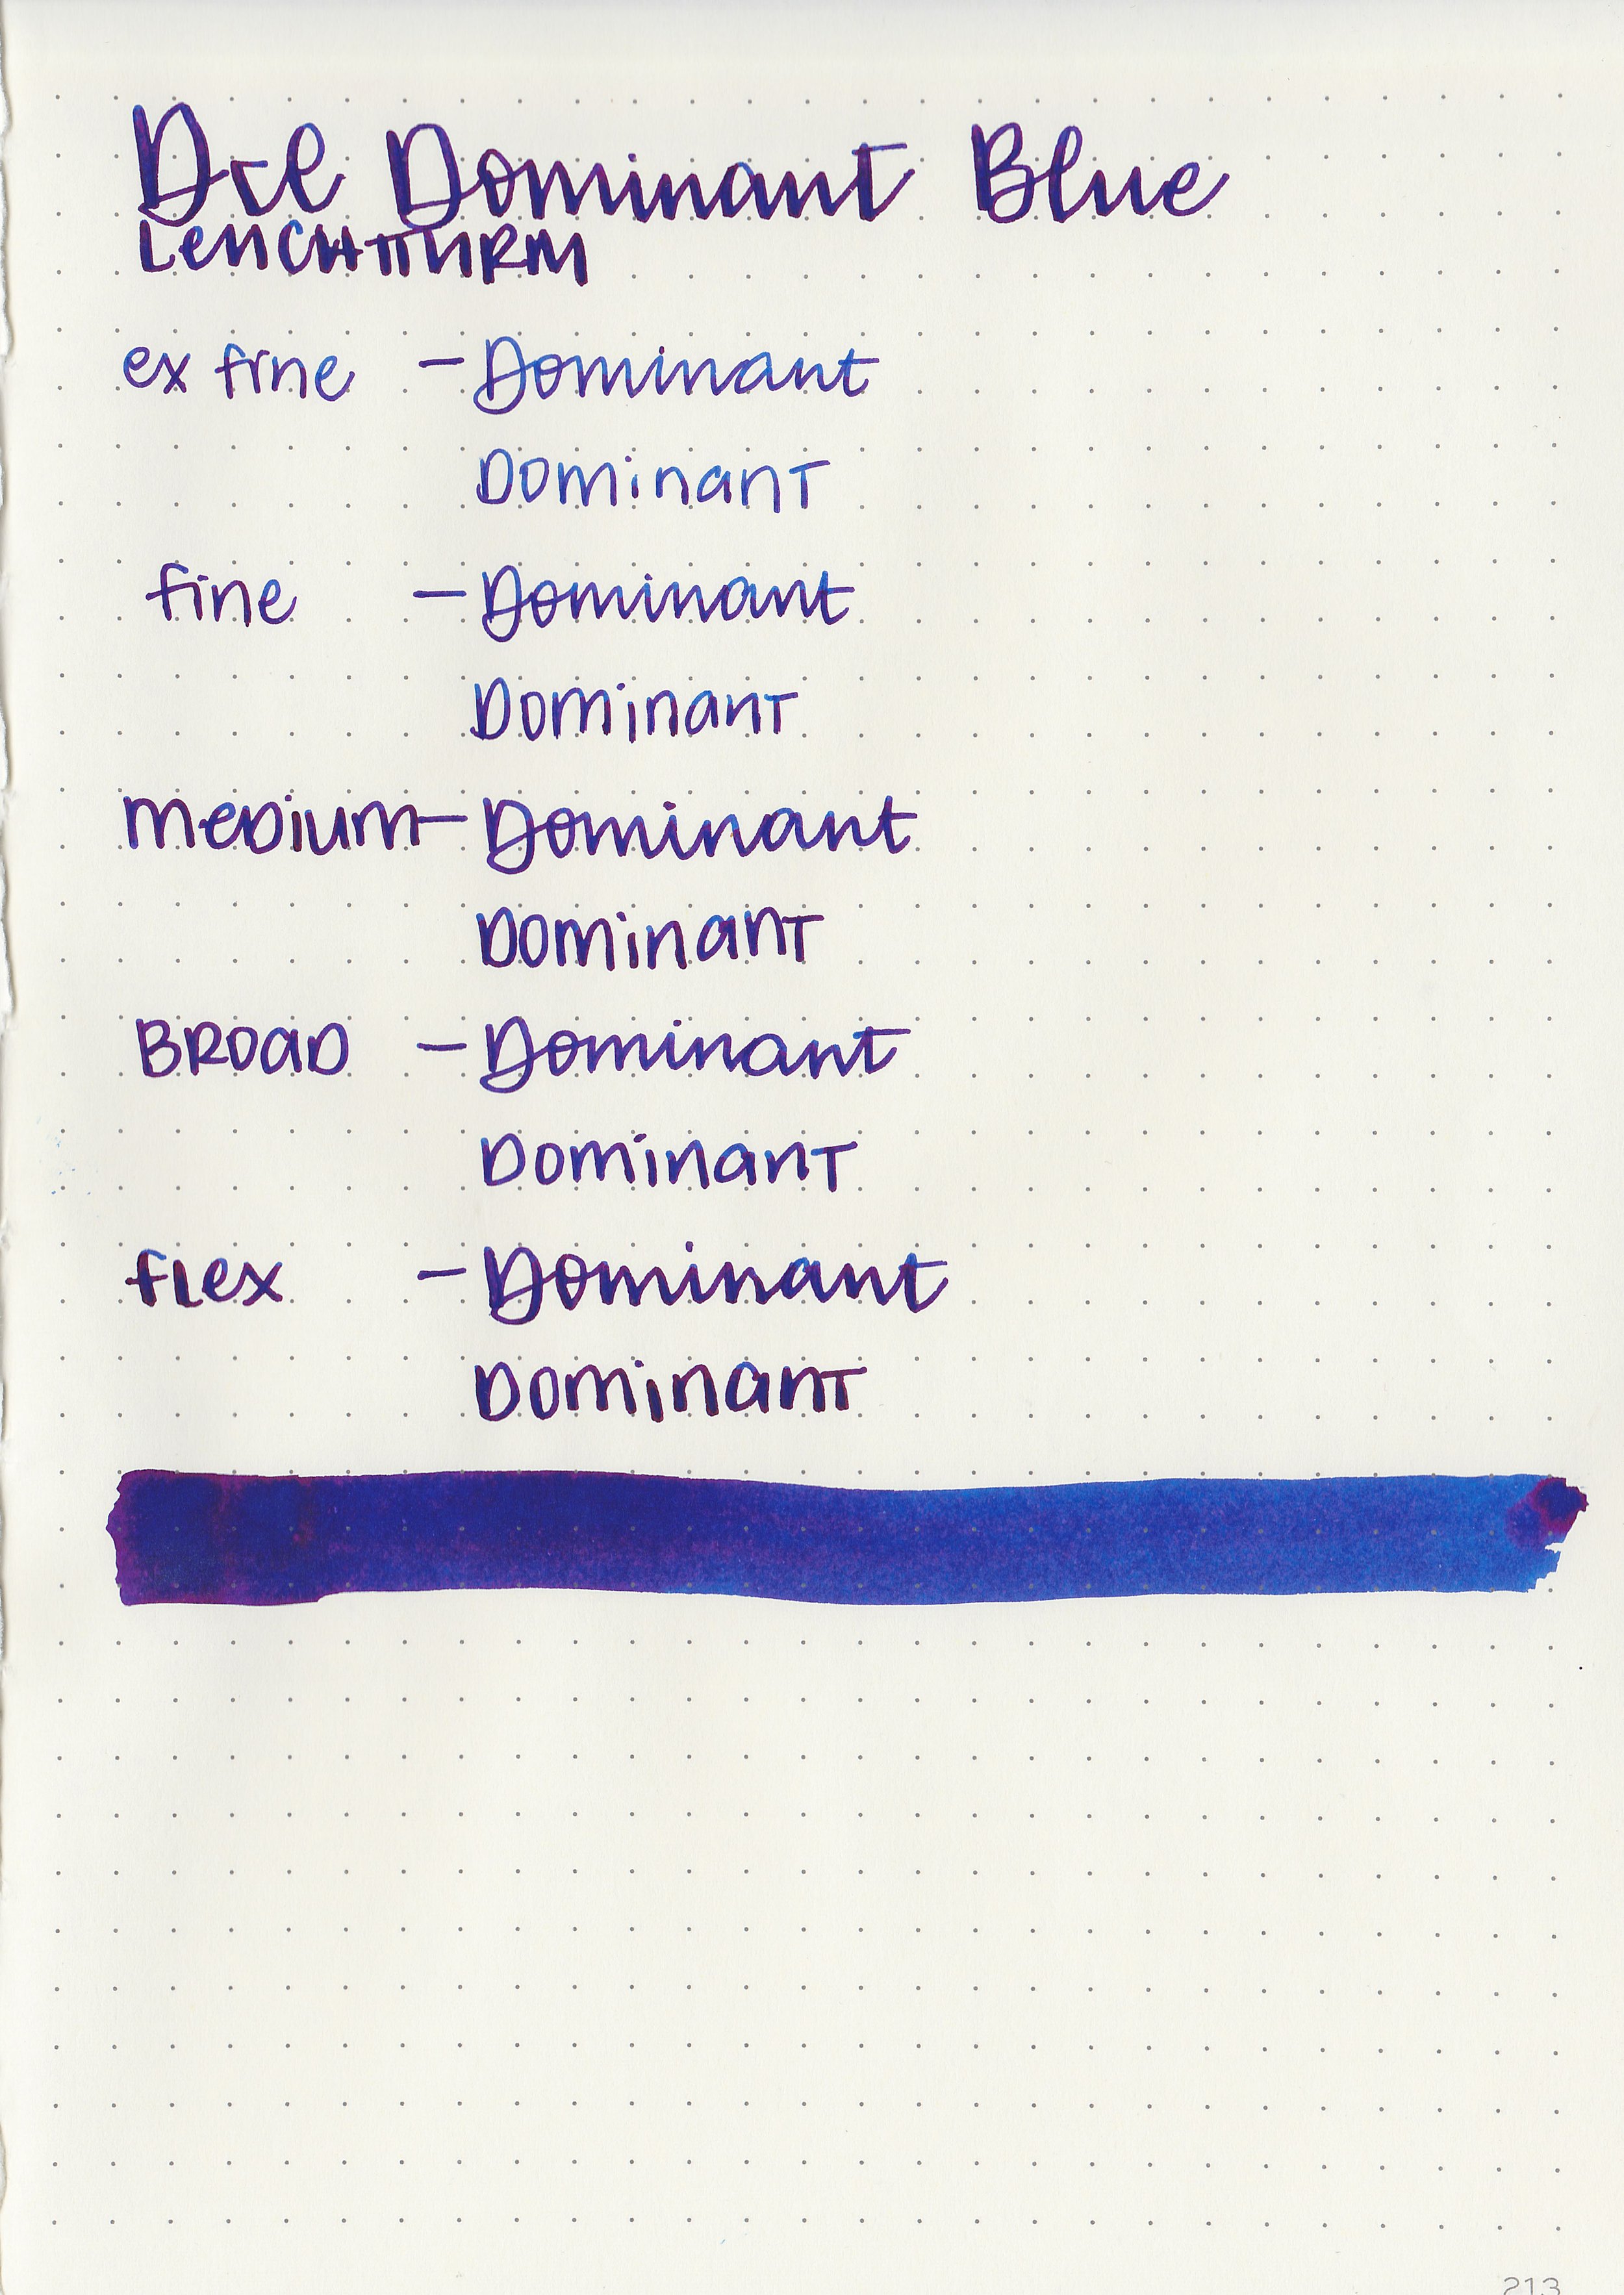 Dcl Dominant Blue
LEUCHTTURM
ex fine - Dominant
Dominant
fine - Dominant
Dominant
MEDIUM - Dominant
Dominant
BROAD - Dominant
Dominant
flex - Dominant
Dominant
213